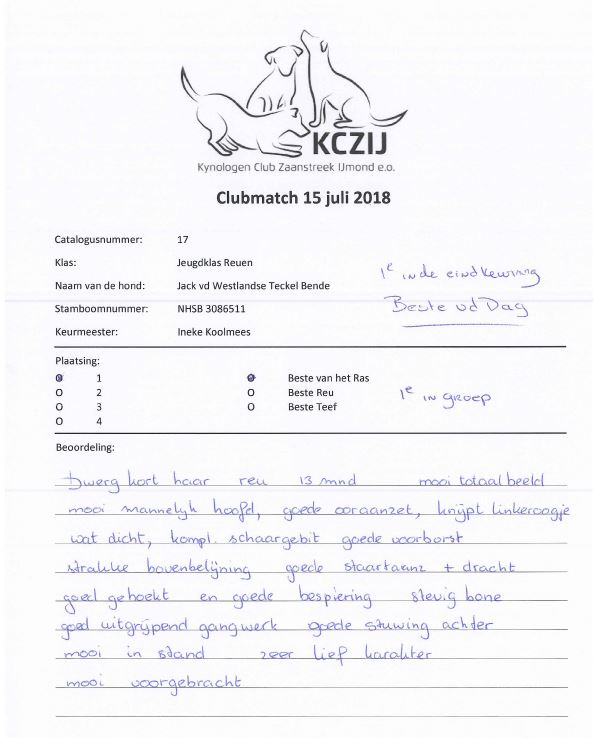 KCZIJ
Kynologen Club Zaanstreek IJmond e.o.
Clubmatch 15 juli 2018
Catalogusnummer: 17
Klas: Jeugdklas Reuen
Naam van de hond: Jack vd Westlandse Teckel Bende
Stamboomnummer: NHSB 3086511
Keurmeester: Ineke Koolmees
1e in de eindkeuring
Beste vd Dag
Plaatsing:
O 1 O Beste van het Ras
O 2 O Beste Reu
O 3 O Beste Teef
O 4
1e in groep
Beoordeling:
Dwerg kort haar reu 13 mnd mooi totaalbeeld
mooi mannelyk hoofd, goede ooraanzet, knijpt linkeroogje
wat dicht, kompl. schaargebit goede voorborst
strakke bovenbelijning goede staartaanz + dracht
goed gehoekt en goede bespiering stevig bone
goed uitgrijpend gangwerk goede stuwing achter
mooi in stand zeer lief karakter
mooi voorgebracht